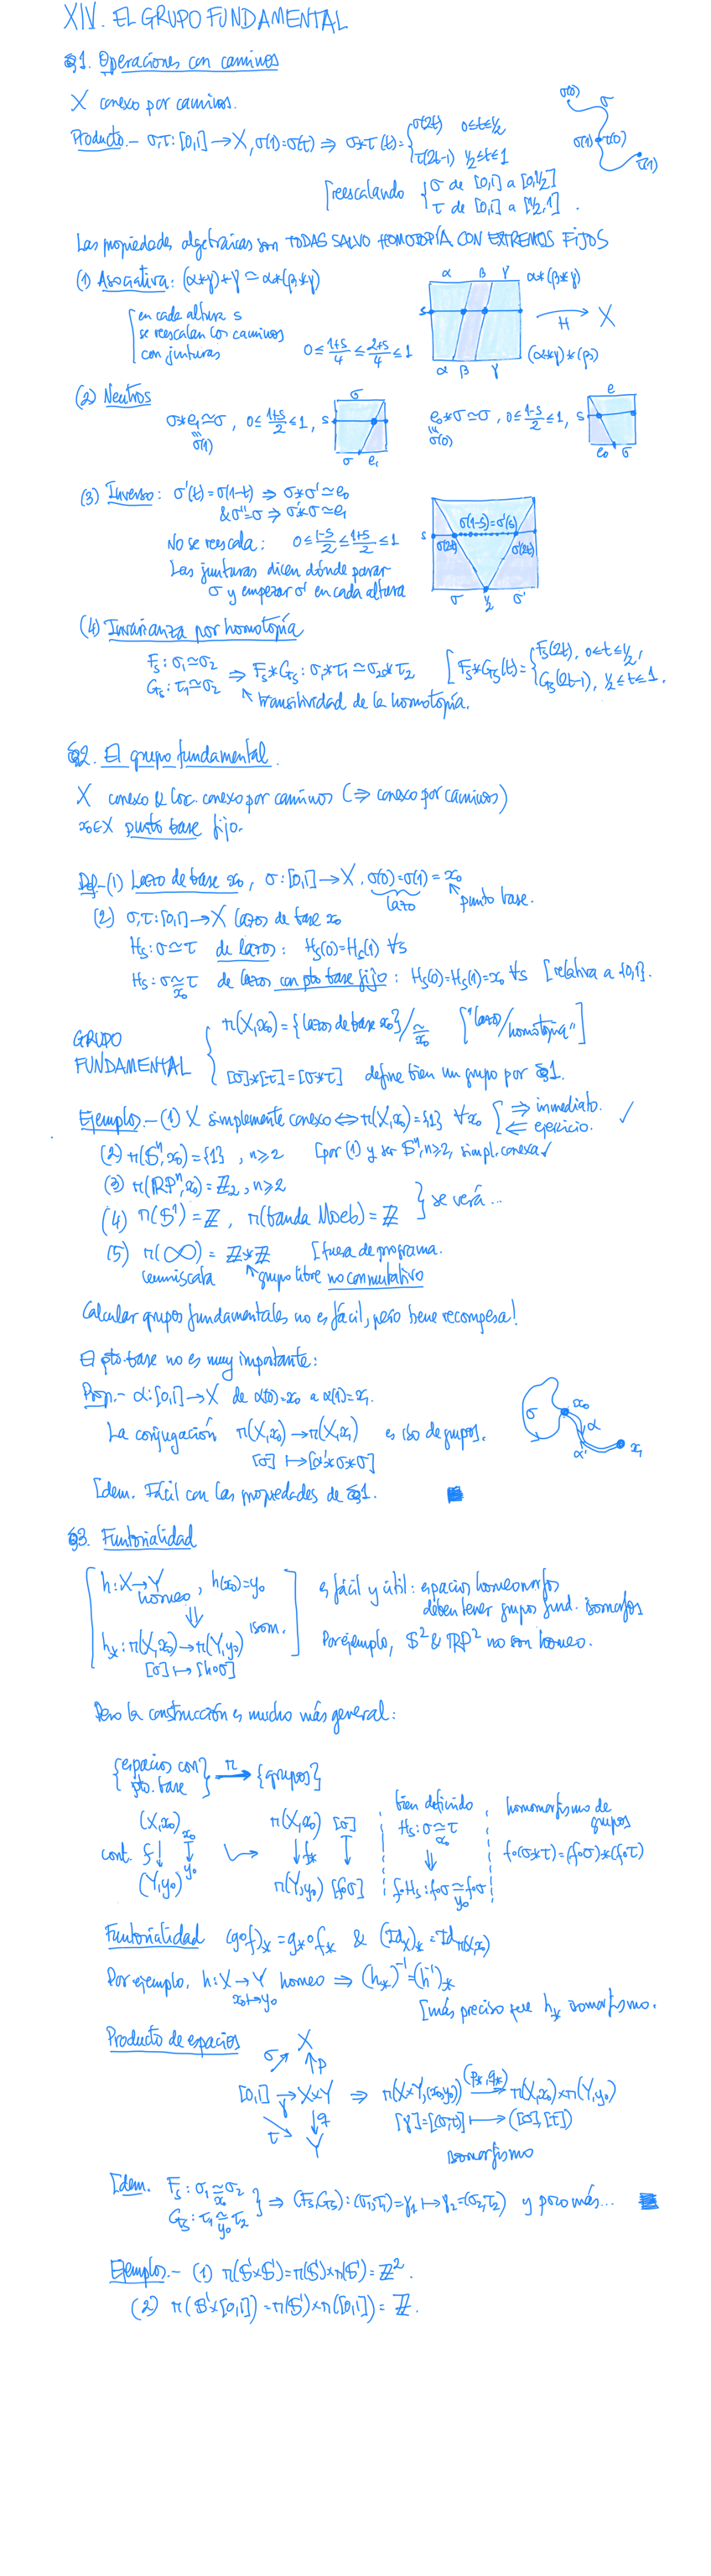 XIV. EL GRUPO FUNDAMENTAL
§1. Operaciones con caminos
X conexo por caminos.
Producto.- σ,τ: [0,1] → X, σ(1)=σ(τ) ⇒ σ*τ(t) = { σ(2t) 0≤t≤1/2
τ(2t-1) 1/2≤t≤1
σ(0) σ σ(1) τ(0) τ(1)
[reescalando { σ de [0,1] a [0,1/2]
τ de [0,1] a [1/2,1] .
Las propiedades algebraicas son TODAS SALVO HOMOTOPÍA CON EXTREMOS FIJOS
(1) Asociativa: (α*γ)*γ ≃ α*(β*γ)
[en cada altura s
se reescalan los caminos
con junturas 0 ≤ (1+s)/4 ≤ (2+s)/4 ≤ 1
α β γ α*(β*γ)
s H → X
α β γ (α*γ)*(β)
(2) Neutros
σ*e₁ ≃ σ, 0 ≤ (1+s)/2 ≤ 1,
σ(1)
σ s σ e₁
e₀*σ ≃ σ, 0 ≤ (1-s)/2 ≤ 1,
σ(0)
e s e₀ σ
(3) Inverso: σ'(t)=σ(1-t) ⇒ σ*σ' ≃ e₀
& σ''=σ ⇒ σ'*σ ≃ e₁
No se reescala: 0 ≤ (1-s)/2 ≤ (1+s)/2 ≤ 1
Las junturas dicen dónde parar
σ y empezar σ' en cada altura
s σ(1-s)=σ'(s)
σ(2t) σ'(2t)
σ 1/2 σ'
(4) Invarianza por homotopía
Fₛ: σ₁≃σ₂
Gₛ: τ₁≃σ₂ ⇒ Fₛ*Gₛ: σ₁*τ₁ ≃ σ₂*τ₂ [Fₛ*Gₛ(t) = { Fₛ(2t), 0≤t≤1/2,
Gₛ(2t-1), 1/2≤t≤1.
↖ transitividad de la homotopía.
§2. El grupo fundamental.
X conexo & loc. conexo por caminos (⇒ conexo por caminos)
x₀∈X punto base fijo.
Def.-(1) Lazo de base x₀, σ: [0,1] → X, σ(0)=σ(1) = x₀
lazo punto base.
(2) σ,τ: [0,1] → X lazos de base x₀
Hₛ: σ≃τ de lazos: Hₛ(0)=Hₛ(1) ∀s
Hₛ: σ≃τ de lazos con pto base fijo: Hₛ(0)=Hₛ(1)=x₀ ∀s [relativa a {0,1}.
x₀
GRUPO FUNDAMENTAL { π(X,x₀) = {lazos de base x₀}/≃x₀ ["lazos/homotopía"]
[σ]*[τ]=[σ*τ] define bien un grupo por §1.
Ejemplos.-(1) X simplemente conexo ⇔ π(X,x₀)={1} ∀x₀ [⇒ inmediato. ✓
⇐ ejercicio.
(2) π(𝕊ⁿ,x₀)={1}, n≥2 [por (1) y ser 𝕊ⁿ, n≥2, simpl. conexa ✓
(3) π(ℝPⁿ,x₀)=ℤ₂, n≥2
(4) π(𝕊¹)=ℤ, π(banda Moeb)=ℤ } se verá...
(5) π(∞) = ℤ*ℤ [fuera de programa.
lemniscata ↖ grupo libre no conmutativo
Calcular grupos fundamentales no es fácil, pero tiene recompesa!
El pto. base no es muy importante:
Prop.- α: [0,1] → X de α(0)=x₀ a α(1)=x₁.
La conjugación π(X,x₀) → π(X,x₁) es iso de grupos.
[σ] ↦ [α'*σ*σ]
σ x₀ α α' x₁
[dem. Fácil con las propiedades de §1.
§3. Funtorialidad
[ h: X→Y homeo, h(x₀)=y₀
⇓
h*: π(X,x₀)→π(Y,y₀) isom.
[σ] ↦ [h∘σ] ]
es fácil y útil: espacios homeomorfos
deben tener grupos fund. isomorfos
Por ejemplo, 𝕊² & ℝP² no son homeo.
Pero la construcción es mucho más general:
{espacios con pto. base} π → {grupos}
(X,x₀) x₀ π(X,x₀) [σ]
cont. f↓ ↧ ↓f* ↧
(Y,y₀) y₀ π(Y,y₀) [f∘σ]
bien definido
Hₛ: σ≃τ
x₀
⇓
f∘Hₛ: f∘σ≃f∘σ
y₀
homomorfismo de grupos
f∘(σ*τ)=(f∘σ)*(f∘τ)
Funtorialidad (g∘f)* = g*∘f* & (Idₓ)* = Id π(X,x₀)
Por ejemplo, h: X → Y homeo ⇒ (h*)⁻¹=(h⁻¹)*
x₀↦y₀
[más preciso que h* isomorfismo.
Producto de espacios X
σ↗ ↑p
[0,1] →γ X×Y ⇒ π(X×Y,(x₀,y₀)) (p*,q*) → π(X,x₀)×π(Y,y₀)
τ↘ ↓q [γ]=[(σ,τ)] ↦ ([σ],[τ])
Y isomorfismo
[dem. Fₛ: σ₁≃σ₂
x₀
Gₛ: τ₁≃τ₂ } ⇒ (Fₛ,Gₛ): (σ₁,τ₁)=γ₁ ↦ γ₂=(σ₂,τ₂) y poco más...
y₀
Ejemplos.- (1) π(𝕊¹×𝕊¹)=π(𝕊¹)×π(𝕊¹)=ℤ².
(2) π(𝕊¹×[0,1])=π(𝕊¹)×π([0,1])=ℤ.